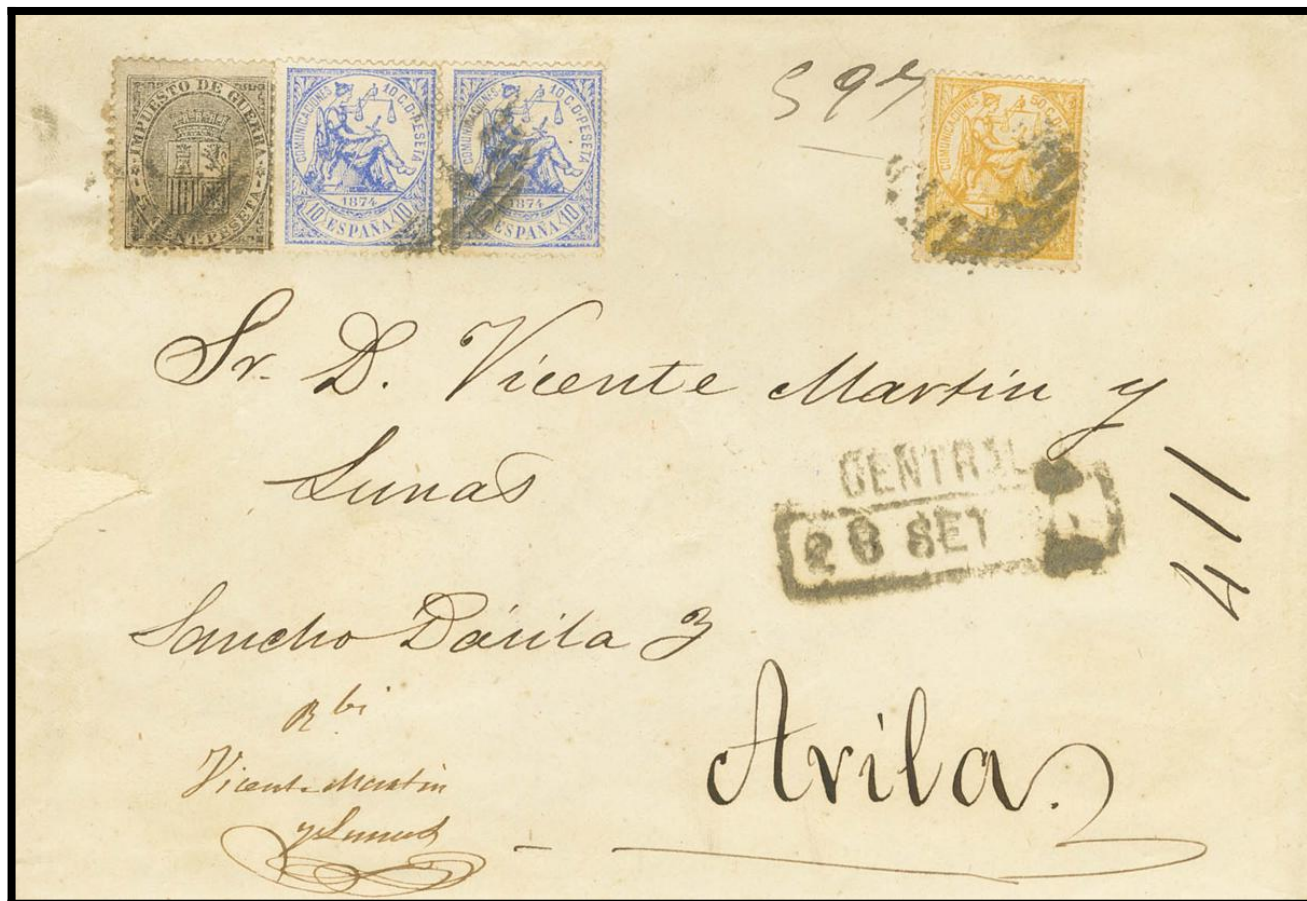 IMPUESTO DE GUERRA
5 CENT. PESETA
COMUNICACIONES 10 C. D PESETA
1874
10 ESPAÑA 10
COMUNICACIONES 10 C. D PESETA
1874
ESPAÑA 10
COMUNICACIONES 50
Sr. D. Vicente Martin y
Lunas
CENTRAL
28 SET
411
Sancho Dávila 3
Rbi
Vicente Martin
y Lunas
Avila.